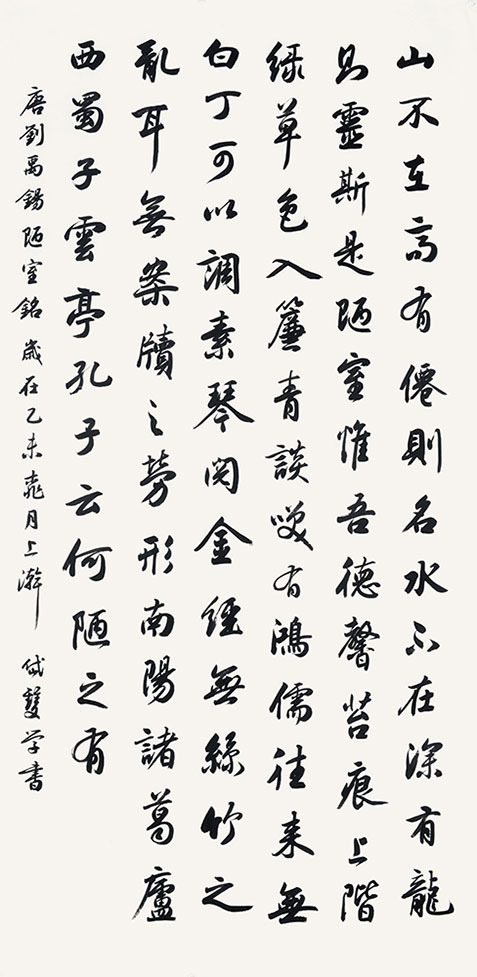 山不在高有僊則名水不在深有龍
則靈斯是陋室惟吾德馨苔痕上階
綠草色入簾青談笑有鴻儒往来無
白丁可以調素琴閱金經無絲竹之
亂耳無案牘之勞形南陽諸葛廬
西蜀子雲亭孔子云何陋之有
唐劉禹錫陋室銘 歲在乙未月上澣 学書